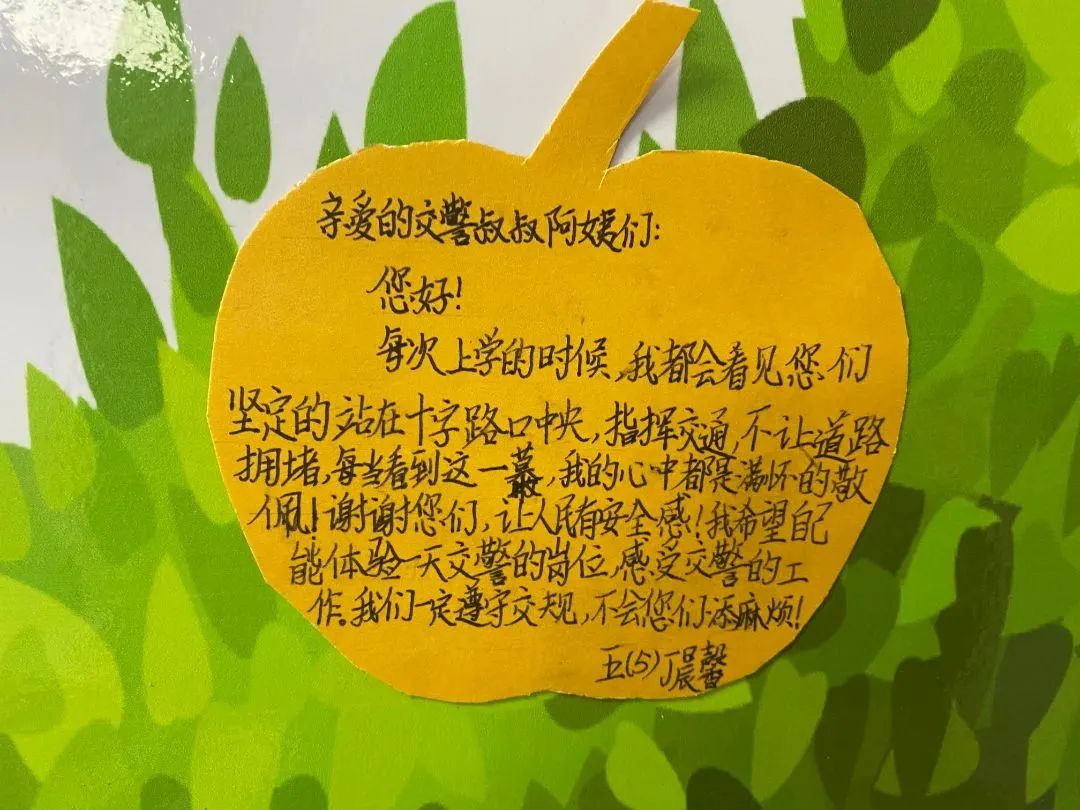 亲爱的交警叔叔阿姨们:
您好!
每次上学的时候,我都会看见您们
坚定的站在十字路口中央,指挥交通,不让道路
拥堵,每当看到这一幕,我的心中都是满怀的敬
佩!谢谢您们,让人民有安全感!我希望自己
能体验一天交警的岗位,感受交警的工
作。我们一定遵守交规,不会您们添麻烦!
五(5)丁晨馨